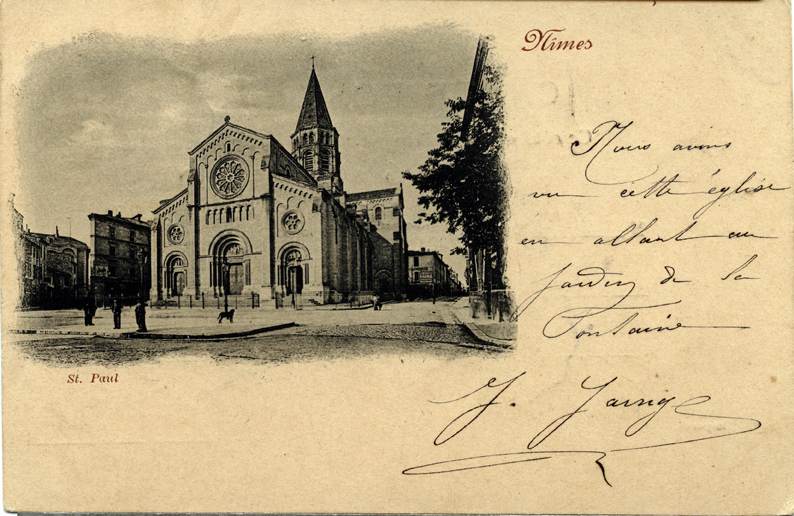 Nîmes
Nous avons
vu cette église
en allant au
Jardin de la
Fontaine
St. Paul
J.